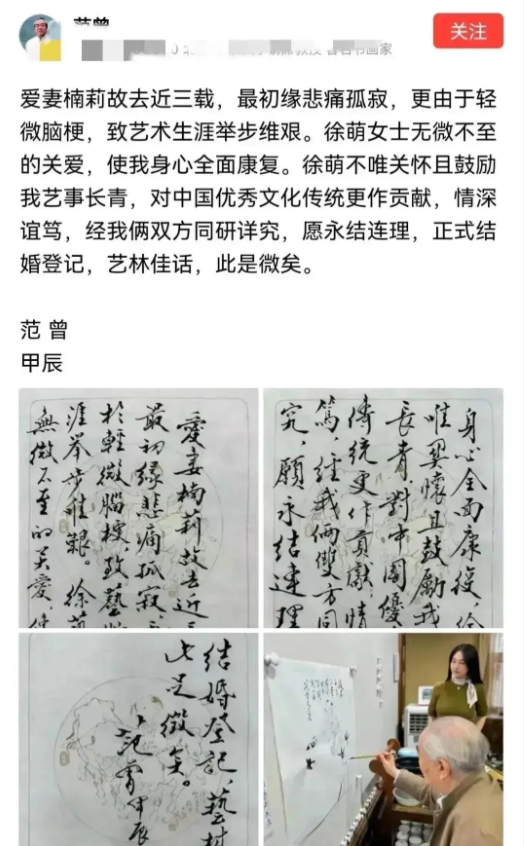 范曾
关注
书画家
爱妻楠莉故去近三载，最初缘悲痛孤寂，更由于轻
微脑梗，致艺术生涯举步维艰。徐萌女士无微不至
的关爱，使我身心全面康复。徐萌不唯关怀且鼓励
我艺事长青，对中国优秀文化传统更作贡献，情深
谊笃，经我俩双方同研详究，愿永结连理，正式结
婚登记，艺林佳话，此是微矣。
范 曾
甲辰
愛妻楠莉故去近
最初缘悲痛孤寂
於輕微腦梗，致藝
涯举步维艱。徐
無微不至的关愛，使
身心全面康復，徐
唯関懷且鼓勵我
長青，對中國優
傳統更作貢獻，情
篤，經我俩雙方同
究，願永结連理
结婚登记，藝林
此足微矣。
范曾甲辰